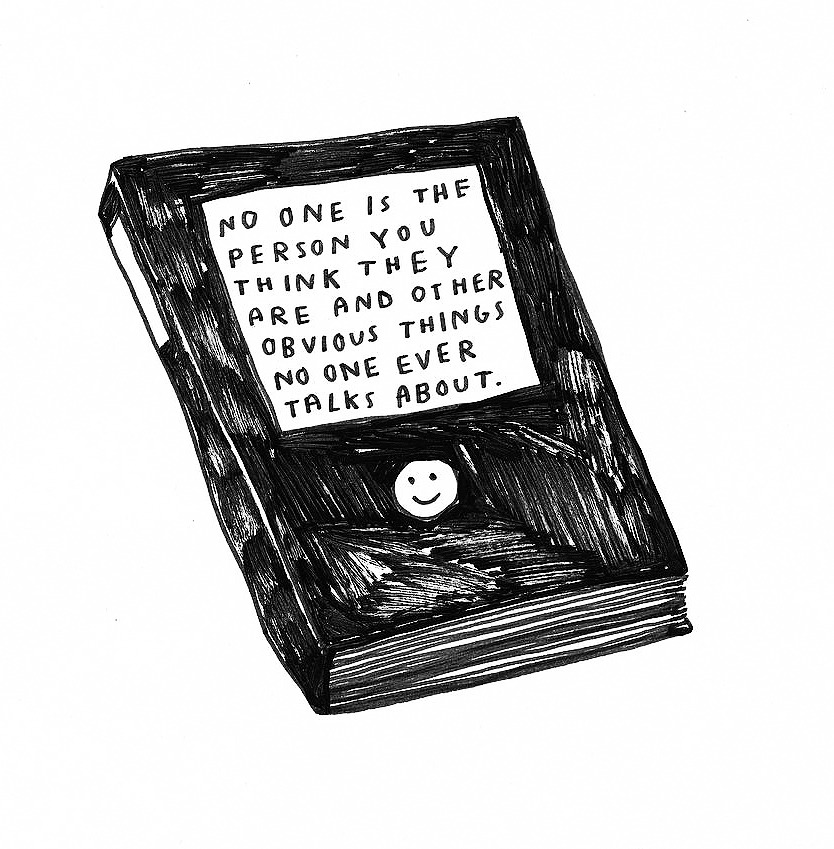 NO ONE IS THE
PERSON YOU
THINK THEY
ARE AND OTHER
OBVIOUS THINGS
NO ONE EVER
TALKS ABOUT.